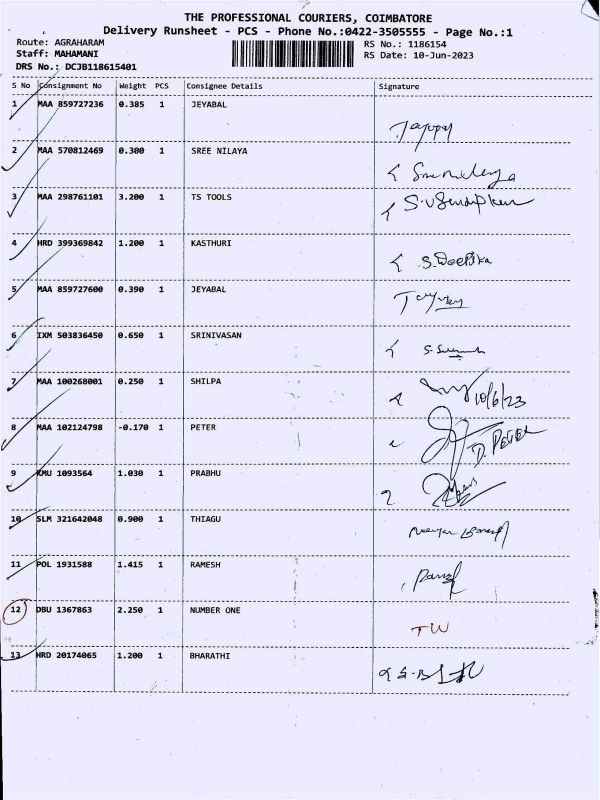 THE PROFESSIONAL COURIERS, COIMBATORE
Delivery Runsheet - PCS - Phone No.:0422-3505555 - Page No.:1
Route: AGRAHARAM RS No.: 1186154
Staff: MAHAMANI RS Date: 10-Jun-2023
DRS No.: DCJB118615401
S No Consignment No Weight PCS Consignee Details Signature
1 MAA 859727236 0.385 1 JEYABAL
2 MAA 570812469 0.300 1 SREE NILAYA
3 MAA 298761101 3.200 1 TS TOOLS
4 HRD 399369842 1.200 1 KASTHURI
S. Deepika
5 MAA 859727600 0.390 1 JEYABAL
6 IXM 503836450 0.650 1 SRINIVASAN
7 MAA 100268001 0.250 1 SHILPA
10/6/23
8 MAA 102124798 -0.170 1 PETER
D. PETER
9 KMU 1093564 1.030 1 PRABHU
10 SLM 321642048 0.900 1 THIAGU
11 POL 1931588 1.415 1 RAMESH
12 DBU 1367863 2.250 1 NUMBER ONE
TW
13 HRD 20174065 1.200 1 BHARATHI